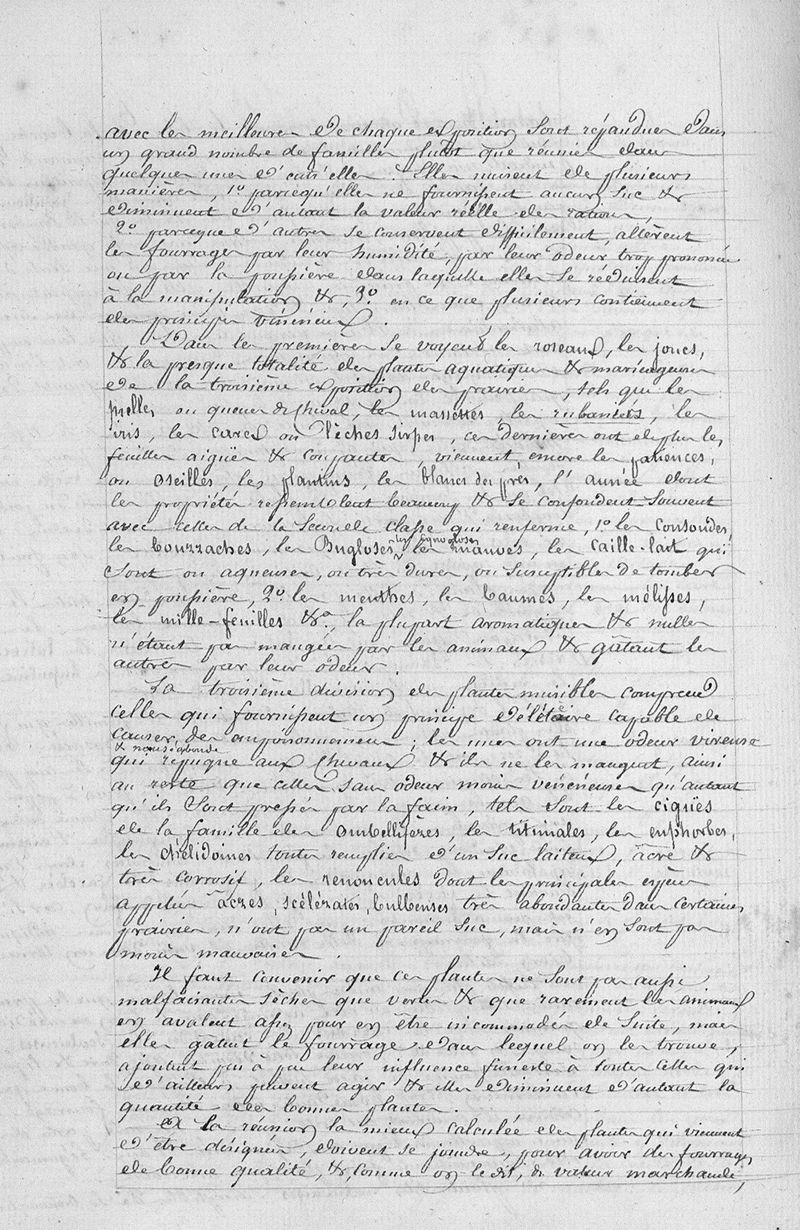 avec les meilleures de chaque exposition sont répandues dans
un grand nombre de familles plutôt que réunies dans
quelques unes d'entr'elles. Elles nuisent de plusieurs
manières, 1º parcequ'elles ne fournissent aucun suc &
diminuent d'autant la valeur réelle des rations,
2º parceque d'autres se conservent difficilement, altèrent
les fourrages par leur humidité, par leur odeur trop prononcée
ou par la poussière dans laquelle elles se réduisent
à la manipulation &, 3º en ce que plusieurs contiennent
des principes vénéneux.
Dans les premières se voyent les roseaux, les joncs,
& la presque totalité des plantes aquatiques & marécageuses
de la troisième exposition des prairies, tels que les
prelles ou queues de cheval, les massettes, les rubaniés, les
iris, les carex ou lèches sirpes, ces dernières ont de plus les
feuilles aigües & coupantes, viennent encore les patiences,
ou oseilles, les plantins, les blancs des prés, l'aunée dont
les propriétés ressemblent beaucoup & se confondent souvent
avec celles de la seconde classe qui renferme, 1º les consoudes,
les bourraches, les Bugloses, les cynogloses les mauves, les caille-lait qui
sont ou aqueuses, ou très dures, ou susceptibles de tomber
en poussière, 2º les menthes, les baumes, les mélisses,
les mille-feuilles &ª, la plupart aromatiques & nulles
n'étant pas mangées par les animaux & gâtant les
autres par leur odeur.
La troisième division des plantes nuisibles comprend
celles qui fournissent un principe délétère capable de
causer des empoisonnemens; les unes ont une odeur vireuse
& nauséabonde
qui répugne aux chevaux & ils ne les mangent, ainsi
au reste que celles sans odeur moins vénéneuses qu'autant
qu'ils sont pressés par la faim, tels sont les ciguës
de la famille des ombellifères, les titimales, les euphorbes,
les chélidoines toutes remplies d'un suc laiteux, âcre &
très corrosif, les renoncules dont les principales espèces
appelées âcres, scélérates, bulbeuses très abondantes dans certaines
prairies, n'ont pas un pareil suc, mais n'en sont pas
moins mauvaises.
Il faut convenir que ces plantes ne sont pas aussi
malfaisantes sèches que vertes & que rarement les animaux
en avalent assez pour en être incommodés de suite, mais
elles gatent le fourrage dans lequel on les trouve,
ajoutent peu à peu leur influence funeste à toutes celles qui
d'ailleurs peuvent agir & elles diminuent d'autant la
quantité des bonnes plantes.
A la réunion la mieux calculée des plantes qui viennent
d'être désignées, doivent se joindre, pour avoir des fourrages
de bonne qualité, &, comme on le dit, de valeur marchande,